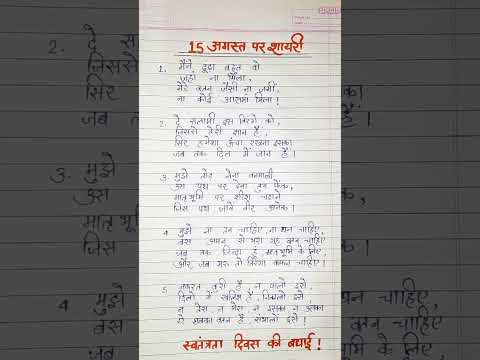 15 अगस्त पर शायरी
1. मैंने ढूंढा बहुत वो
जहाँ ना मिला,
मेरे वतन जैसी ना जमीं,
ना कोई आसमा मिला!
2. दे सलामी इस तिरंगे को,
जिससे तेरी शान है,
सिर हमेशा ऊंचा रखना इसका
जब तक दिल में जान है।
3. मुझे तोड़ लेना वनमाली
उस पथ पर देना तुम फेंक,
मातृभूमि पर शीश चढ़ाने
जिस पथ जावे वीर अनेक।
4 मुझे ना तन चाहिए, ना धन चाहिए,
बस अमन से भरा यह वतन चाहिए
जब तक जिन्दा हूँ मातृभूमि के लिए,
और जब मरु तो तिरंगा कफन चाहिए
5. नफरत बुरी है, न पालो इसे,
दिलों में खलिश है, निकालो इसे,
न तेरा, न मेरा, न इसका न उसका
ये सबका वतन है संभालो इसे!
स्वतंत्रता दिवस की बधाई!
2. दे स
जिससे
सिर
जब त
है।
3. मुझे
उस
मातृभूमि
जिस
4 मुझे
बस
जब
चाहिए,
वतन चाहिए
के लिए,